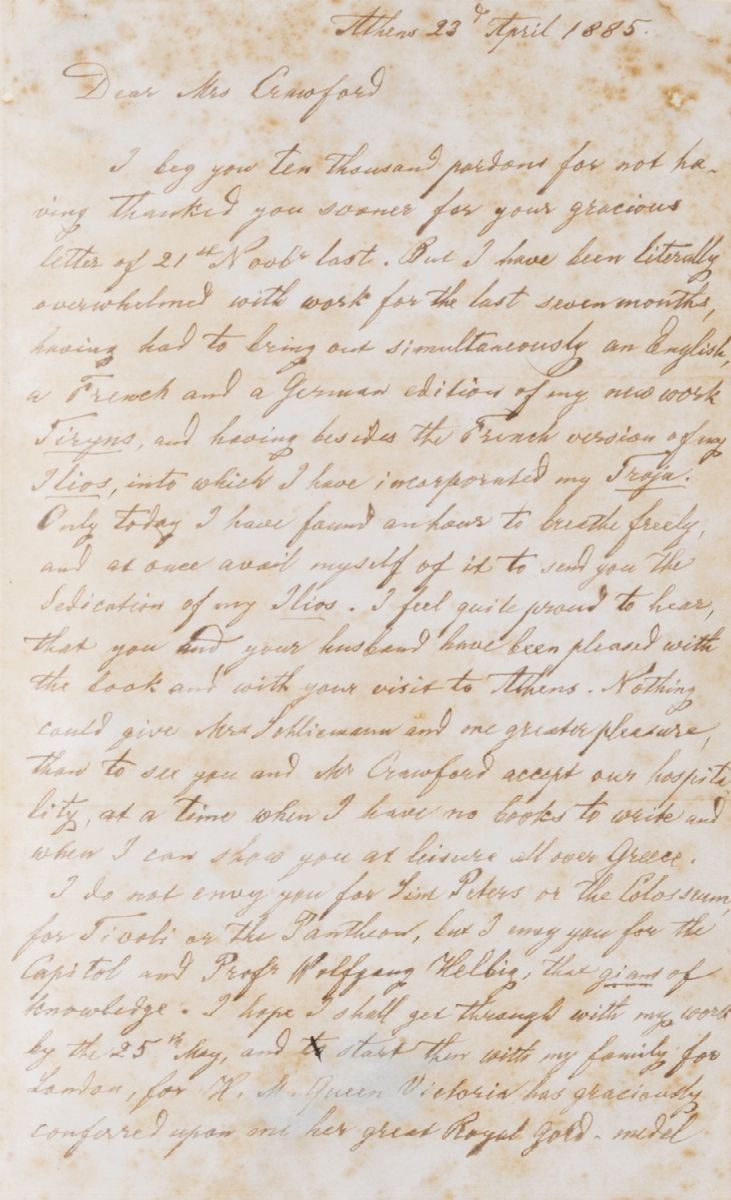 Athens 23d April 1885.
Dear Mrs Crawford
I beg you ten thousand pardons for not ha-
ving thanked you sooner for your gracious
letter of 21st Novbr last. But I have been literally
overwhelmed with work for the last seven months,
having had to bring out simultaneously an English,
a French and a German edition of my new work
Tiryns, and having besides the French version of my
Ilios, into which I have incorporated my Troja.
Only today I have found an hour to breathe freely,
and at once avail myself of it to send you the
dedication of my Ilios. I feel quite proud to hear,
that you and your husband have been pleased with
the book and with your visit to Athens. Nothing
could give Mrs Schliemann and me greater pleasure,
than to see you and Mr Crawford accept our hospita
lity, at a time when I have no books to write and
when I can show you at leisure all over Greece.
I do not envy you for Sim Peters or the Colosseum,
for Tivoli or the Pantheon, but I envy you for the
Capitol and Profr Wolfgang Helbig, that giant of
knowledge. I hope I shall get through with my work
by the 25th May, and to start then with my family for
London, for H. M. Queen Victoria has graciously
conferred upon me her great Royal gold-medel